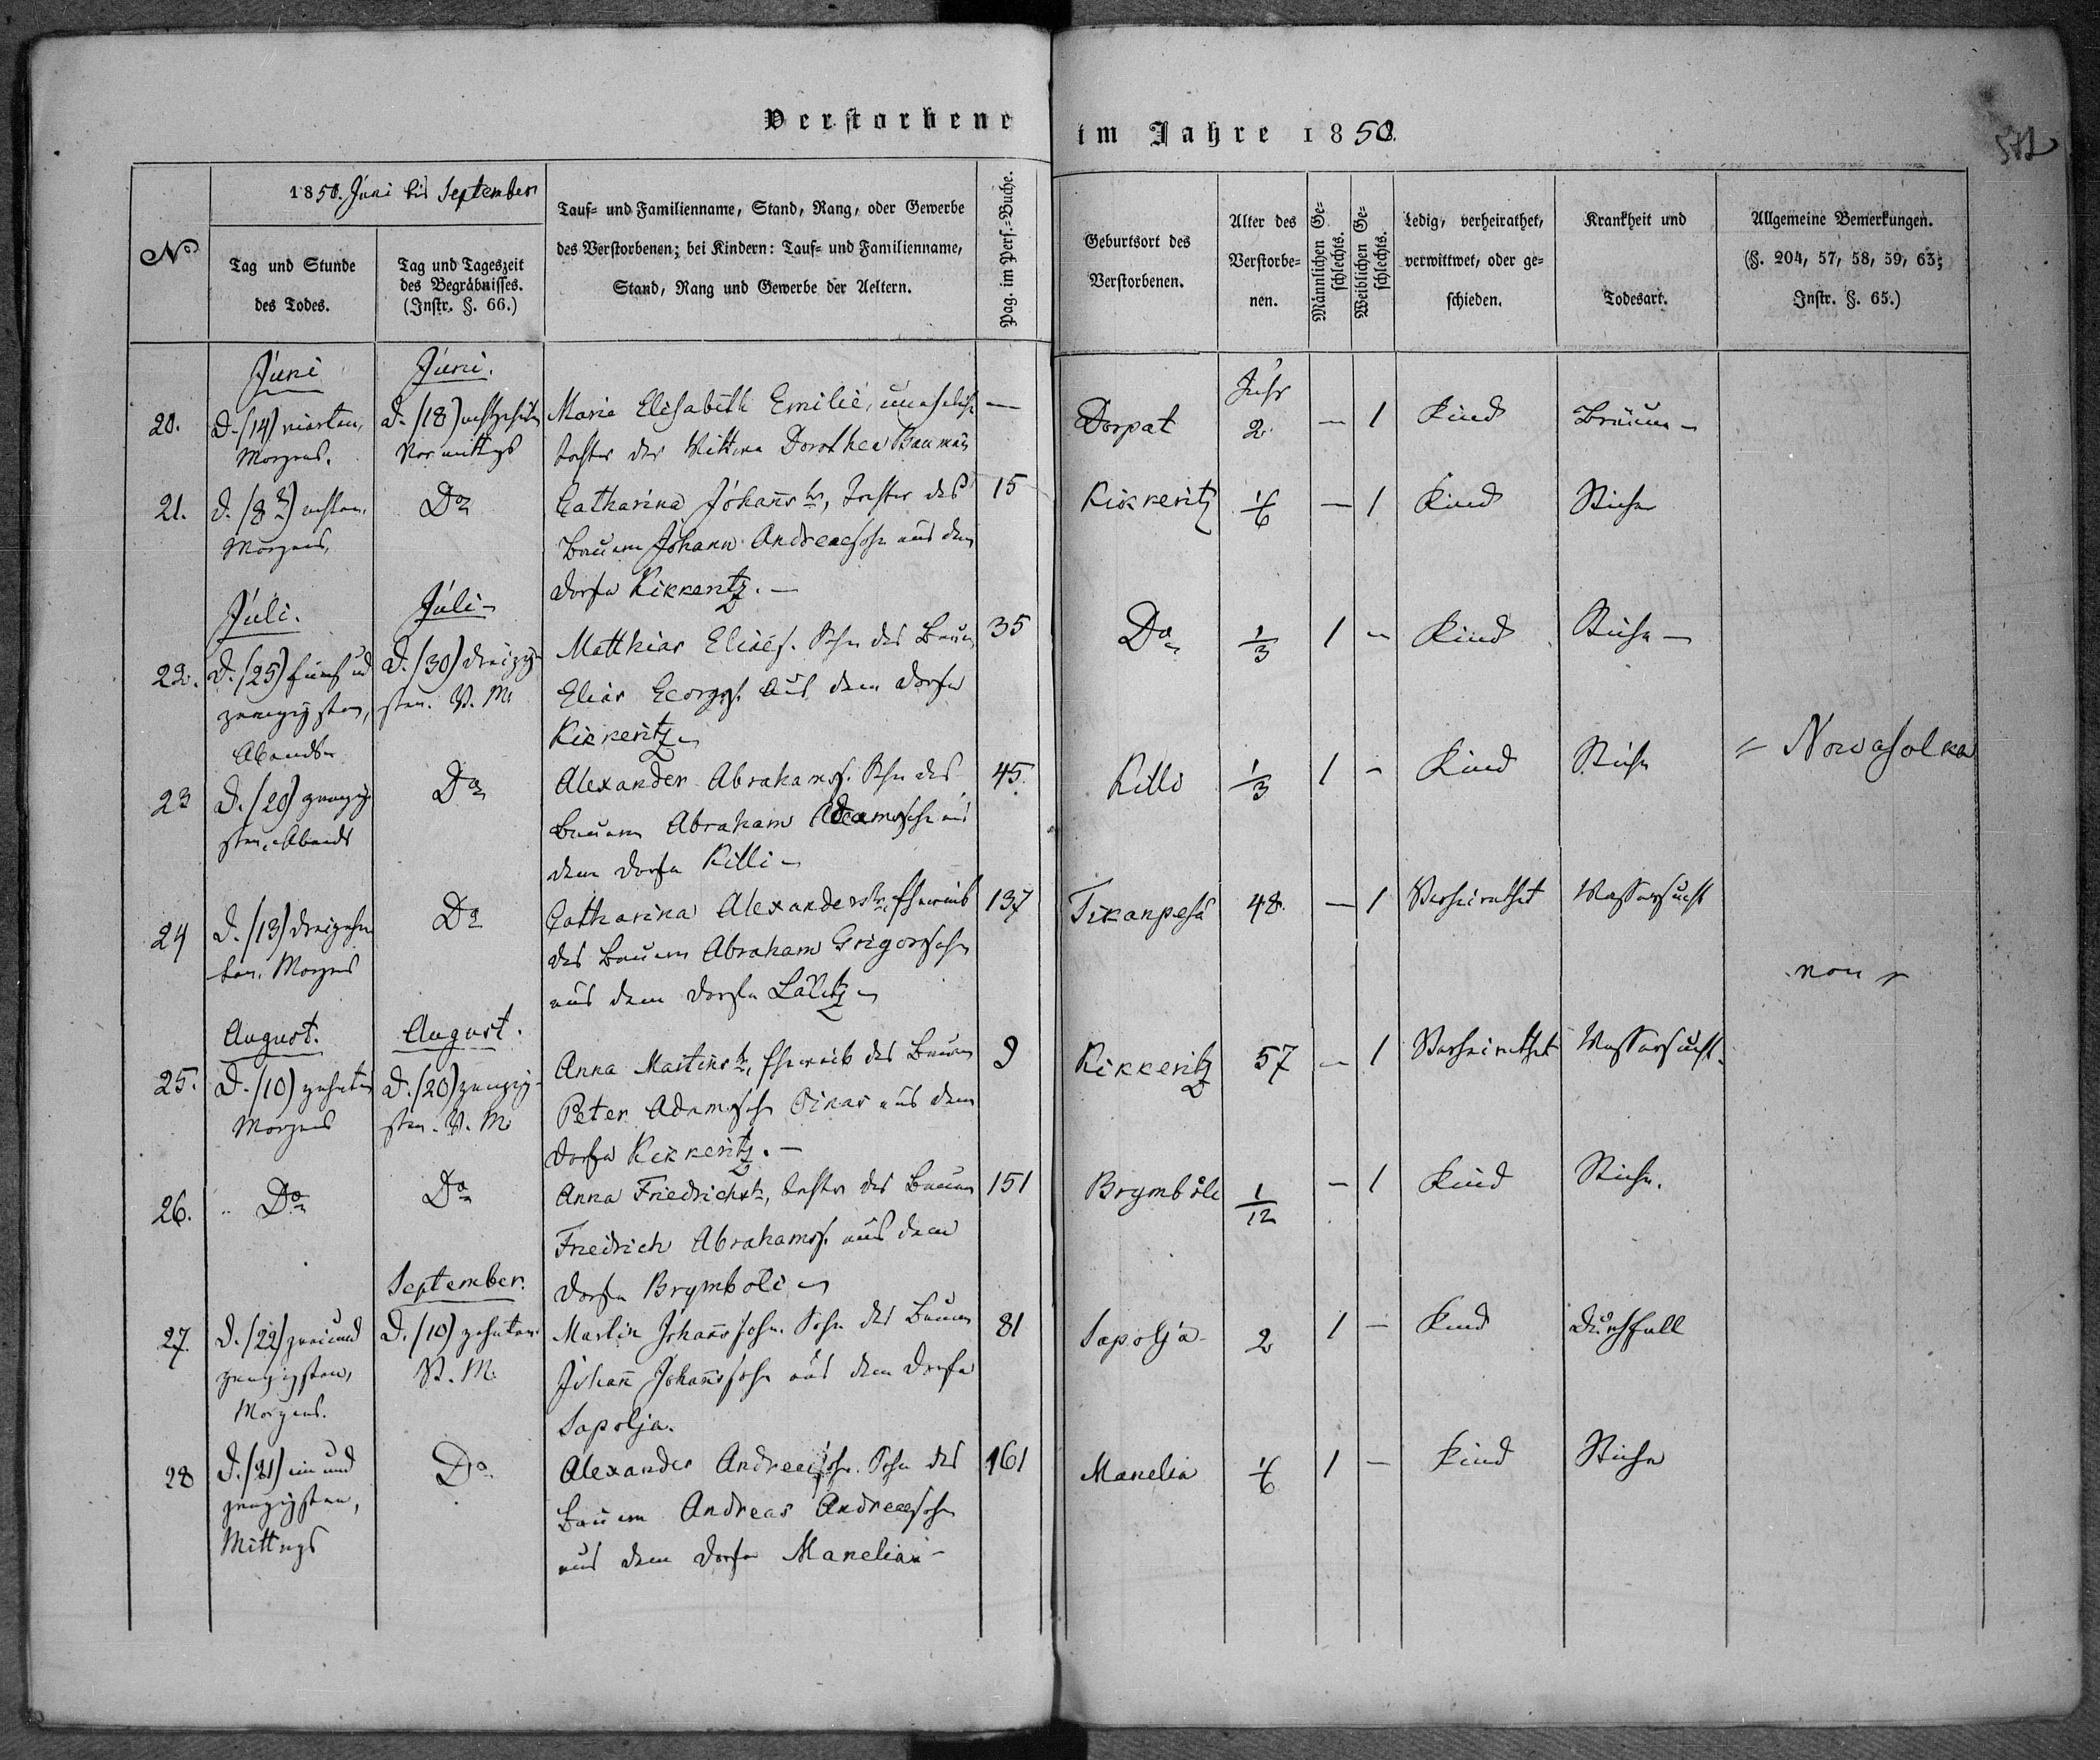 Verstorbene im Jahre 1850.
572
1850. Juni bis September
No
Tag und Stunde des Todes.
Tag und Tageszeit des Begräbnisses. (Instr. §. 66.)
Tauf= und Familienname, Stand, Rang, oder Gewerbe
des Verstorbenen; bei Kindern: Tauf= und Familienname,
Stand, Rang und Gewerbe der Aeltern.
Pag. im Pers.=Buche.
Geburtsort des Verstorbenen.
Alter des Verstorbe=nen.
Männlichen Ge=schlechts.
Weiblichen Ge=schlechts.
Ledig, verheirathet, verwittwet, oder ge=schieden.
Krankheit und Todesart.
Allgemeine Bemerkungen.
(§. 204, 57, 58, 59, 63; Instr. §. 65.)
Juni Juni. Jahr
20. D. (14) vierten, D. (18) achtzehn Maria Elisabeth Emilie, unehliche — Dorpat 2 — 1 Kind Bräune —
Morgens. Vormittgs Tochter der Wittwe Dorothea Bauman
21. D. (8) achten, Do Catharina Johannstr, Tochter des 15 Kikkeritz 1/6 — 1 Kind
Morgens, Bauern Johann Andreassohn aus dem
Dorfe Kikkeritz. —
Juli. Juli —
22. D. (25) fünf und D. (30) dreizig Matthias Elias. Sohn des Bauern 35 Do 1/3 1 — Kind
zwanzigsten, sten. V. M. Elias Georgs. aus dem Dorfe
Abends Kikkeritz
23 D. (20) zwanzig Do Alexander Abrahams. Sohn des 45. Killi 1/3 1 — Kind = Nowasolka
sten, Abends Bauern Abraham Adamssohn aus
dem Dorfe Killi —
24 D. (13) dreizehn Do Catharina Alexanderstr. Eheweib 137 Tikanpesä 48. — 1 Verheirathet Wassersucht
ten. Morgens des Bauern Abraham Grigorssohn
aus dem Dorfe Lälitz
August. August.
25. D. (10) zehnten D. (20) zwanzig Anna Martinstr, Eheweib des Bauern 9 Kikkeritz 57 — 1 Verheirathet Wassersucht.
Morgens sten. V. M. Peter Adamssohn aus dem
Dorfe Kikkeritz. —
26. Do Do Anna Friedrichstr, Tochter des Bauern 151 Brymböli 1/12 — 1 Kind
Friedrich Abrahams. aus dem
September. Dorfe Brymböli
27. D. (22) zwei und D. (10) zehnten Martin Johannssohn. Sohn des Bauern 81 Sapolja 2 1 — Kind Durchfall
zwanzigsten, V. M. Johann Johannssohn aus dem Dorfe
Morgens. Sapolja.
28 D. (21) ein und Do Alexander Andreassohn. Sohn des 161 Manelia 1/6 1 — Kind
zwanzigsten, Bauern Andreas Andreassohn
Mittags aus dem Dorfe Manelia —